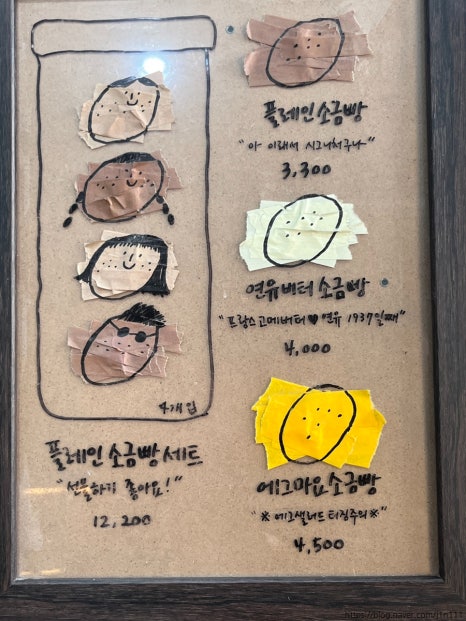 4개입
플레인 소금빵 세트
"선물하기 좋아요!"
12,200
플레인 소금빵
"아 이래서 시그니처구나"
3,300
연유버터 소금빵
"프랑스 고메버터♥연유 1937일째"
4,000
에그마요 소금빵
"※에그샐러드 터짐주의※"
4,500